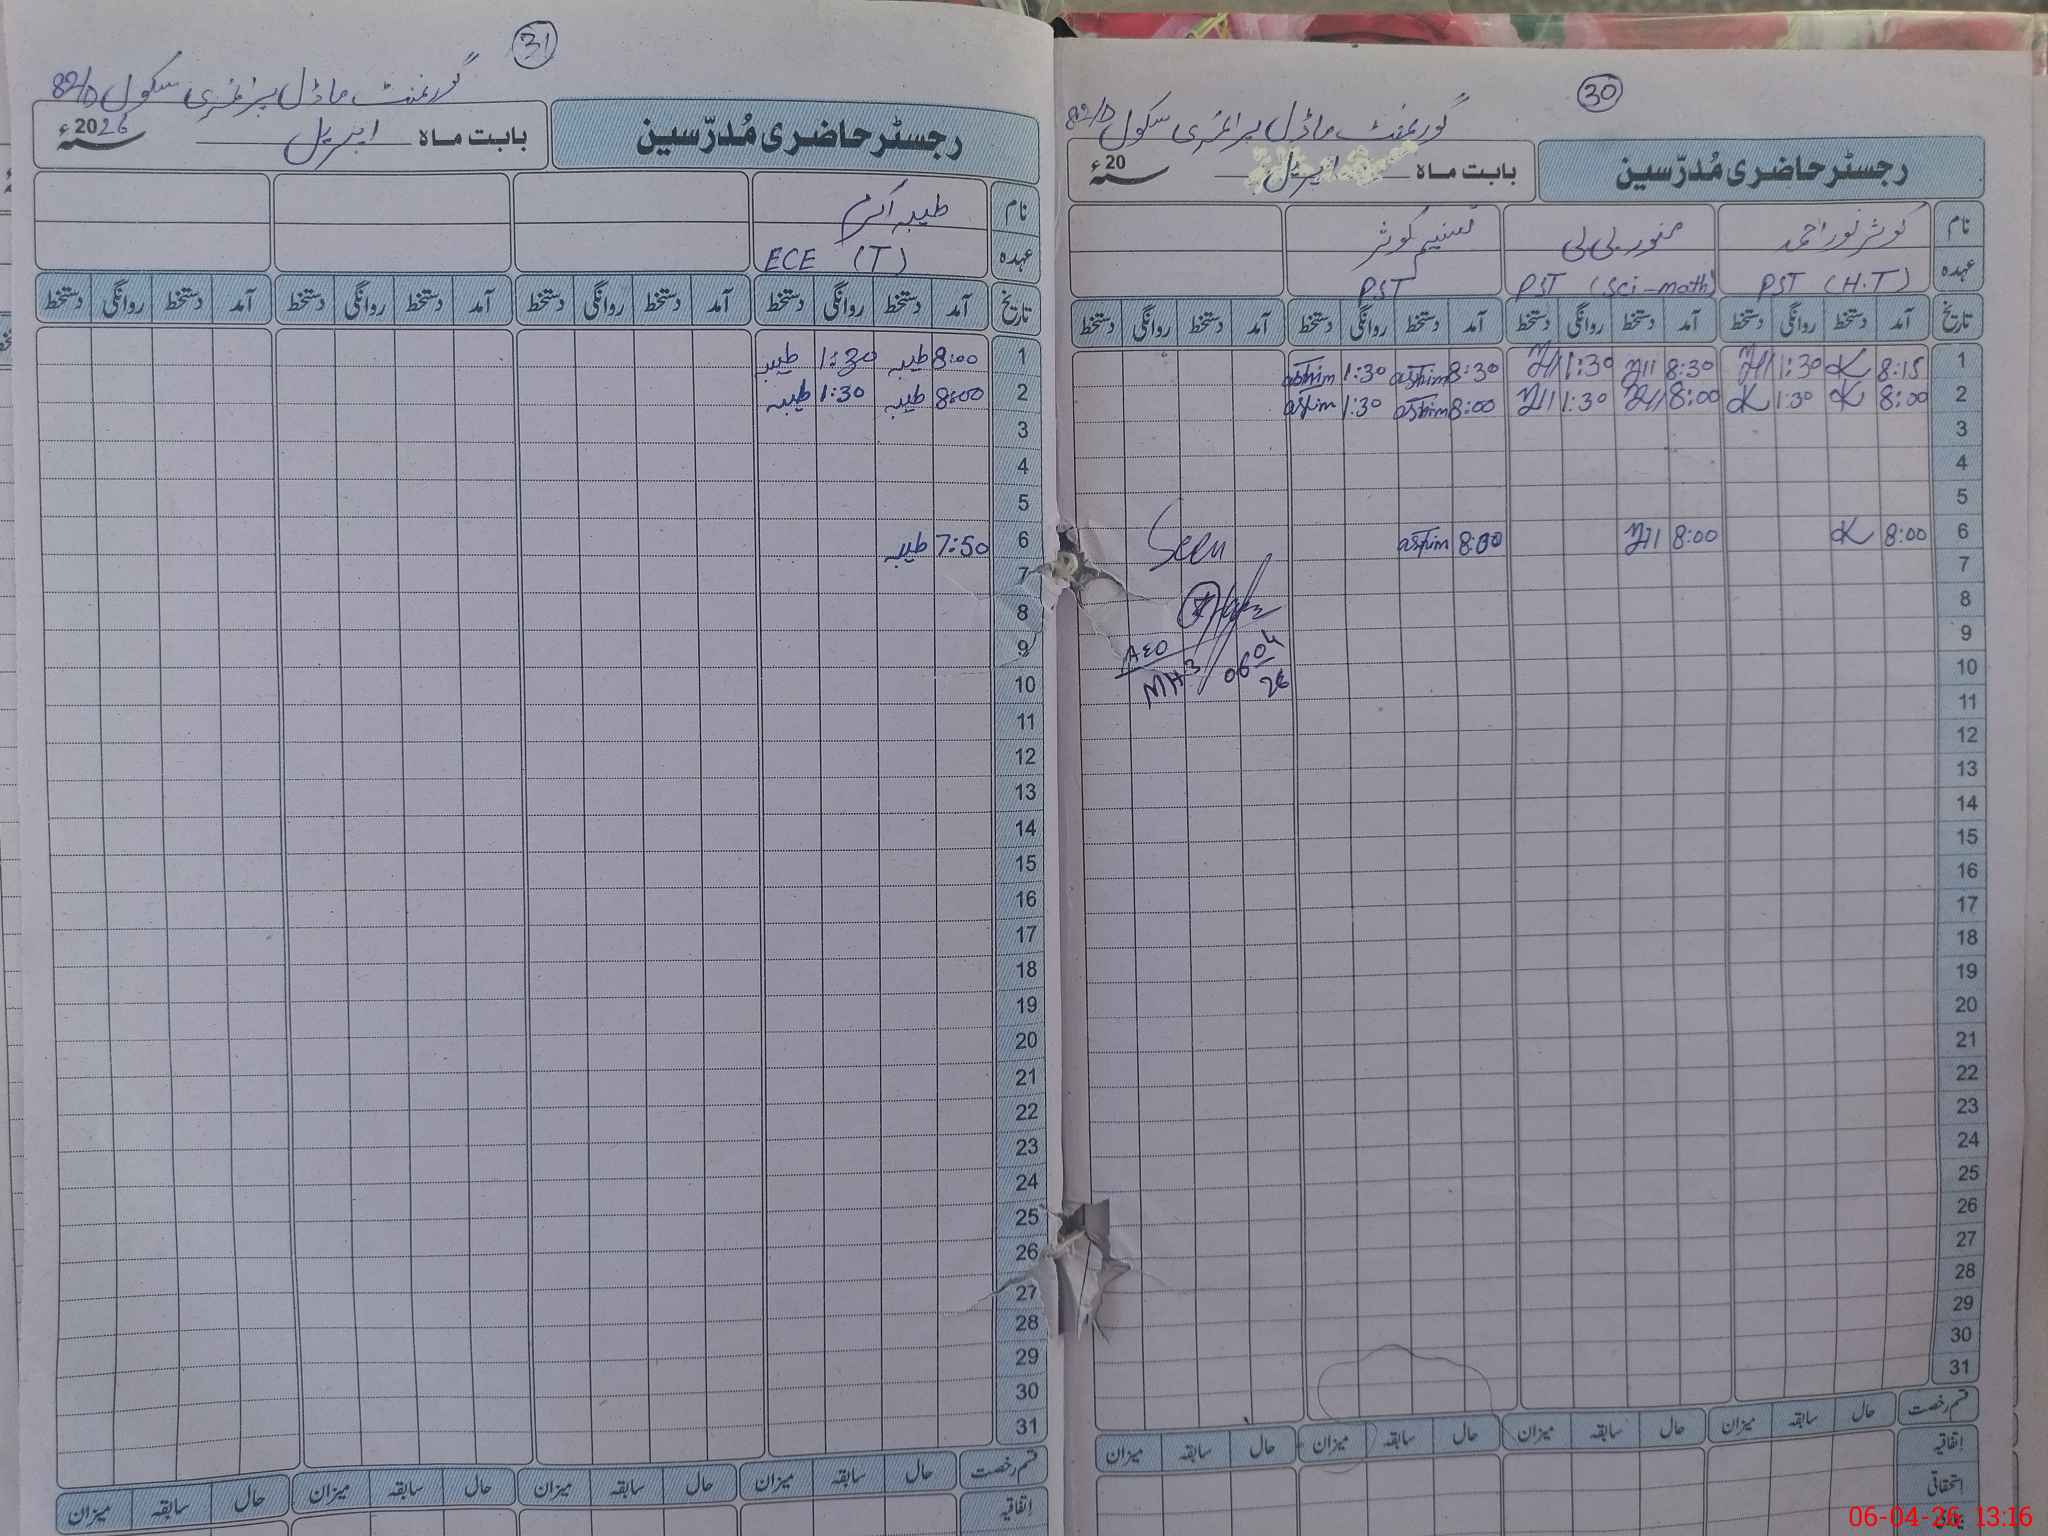 31
گورنمنٹ ماڈل پرائمری سکول 82/D
رجسٹر حاضری مُدرّسین
بابت ماہ اپریل 2026ء
نام طیبہ اکرم
عہدہ ECE (T)
تاریخ آمد دستخط روانگی دستخط آمد دستخط روانگی دستخط آمد دستخط روانگی دستخط آمد دستخط روانگی دستخط
1 8:00 طیبہ 1:30 طیبہ
2 8:00 طیبہ 1:30 طیبہ
3
4
5
6 7:50 طیبہ
7
8
9
10
11
12
13
14
15
16
17
18
19
20
21
22
23
24
25
26
27
28
29
30
31
قسم رخصت حال سابقہ میزان حال سابقہ میزان حال سابقہ میزان حال سابقہ میزان
اتفاقیہ
30
گورنمنٹ ماڈل پرائمری سکول 82/D
رجسٹر حاضری مُدرّسین
بابت ماہ اپریل 20ء
نام کوثر نور احمد منور بی بی تسنیم کوثر
عہدہ PST (H.T) PST (Sci-math) PST
تاریخ آمد دستخط روانگی دستخط آمد دستخط روانگی دستخط آمد دستخط روانگی دستخط آمد دستخط روانگی دستخط
1 8:15 K 1:30 8:30 1:30 8:30 1:30
2 8:00 K 1:30 K 8:00 1:30 8:00 1:30
3
4
5
6 8:00 K 8:00 8:00
Seen
7
8
9
AEO
10
MH-3 06 04 26
11
12
13
14
15
16
17
18
19
20
21
22
23
24
25
26
27
28
29
30
31
قسم رخصت حال سابقہ میزان حال سابقہ میزان حال سابقہ میزان حال سابقہ میزان
اتفاقیہ
استحقاقی
06-04-26 13:16